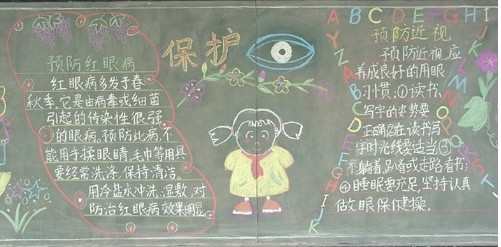 预防红眼病
红眼病多发于春
秋季,它是由病毒或细菌
引起的传染性很强
的眼病,预防此病,不
能用手揉眼睛,毛巾等用具
要经常洗净,保持清洁。
用冷盐水冲洗,湿敷,对
防治红眼病效果明显
保护
A B C D E F G H I
J
K
Y
Z
A
B
C
D
I
J
K
预防近视
预防近视应
养成良好的用眼
习惯:①读书,
写字的姿势要
正确②在读书写
字时光线要适当③
不躺着,趴着或走路看书;
④睡眠要充足,坚持认真
做眼保健操。